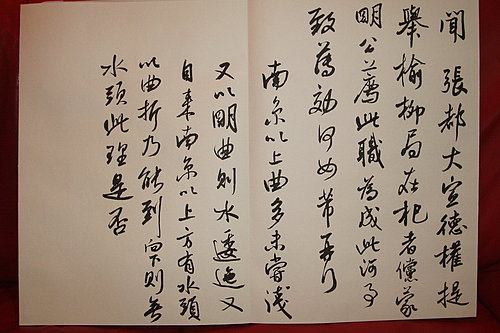 聞張都大宣德權提
舉榆柳局在杞者儻蒙
明公薦此職為成此河事
致薦効何如芾再行
南京以上曲多未嘗淺
又以明曲則水逶迤又
自來南京以上方有水頭
以曲折乃能到向下則無
水頭此理是否